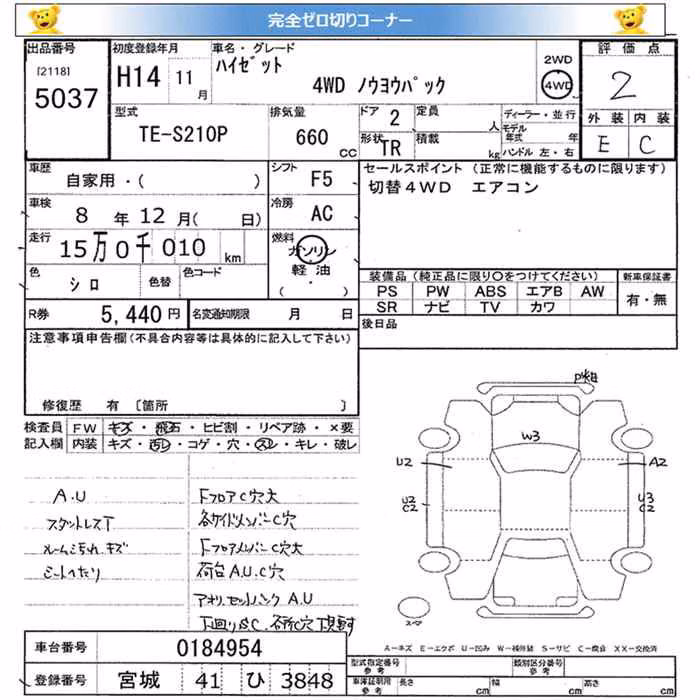 完全ゼロ切りコーナー
出品番号 初度登録年月 車名・グレード 評価点
[2118] 5037 H14 11月 ハイゼット 2WD 2
4WD ノウヨウパック 4WD
型式 排気量 ドア 2 定員 人 ディーラー・並行 外装 内装
TE-S210P 660 CC 形状 TR 積載 kg モデル年式 年 E C
ハンドル 左・右
車歴 自家用・( ) シフト F5 セールスポイント (正常に機能するものに限ります)
切替4WD エアコン
車検 8年 12月( 日) 冷房 AC
走行 15万0千010 km 燃料 ガソリン
軽油
( )
色 シロ 色替 色コード 装備品 (純正品に限り○をつけてください) 新車保証書
PS PW ABS エアB AW 有・無
SR ナビ TV カワ
R券 5,440円 名変通知期限 月 日 後日品
注意事項申告欄 (不具合内容等は具体的に記入して下さい)
修復歴 有 〔箇所 〕
検査員 FW キズ・飛石・ヒビ割・リペア跡・×要
記入欄 内装 キズ・汚レ・コゲ・穴・スレ・キレ・破レ
W3
U2 A2
U2 C2 U3 C2
A.U FフロアC穴大
スタットレスT 各サイドメンバーC穴
ルーム汚れ、キズ FフロアメンバーC穴大
シートへたり 荷台A.U.C穴
A.U
スペア
A−キズ E−エクボ U−凹み W−補修跡 S−サビ C−腐食 XX−交換済
車台番号 0184954 型式指定番号 参考 類別区分番号 参考
登録番号 宮城 41 ひ 3848 車庫証明用 参考 長さ cm 幅 cm 高さ cm